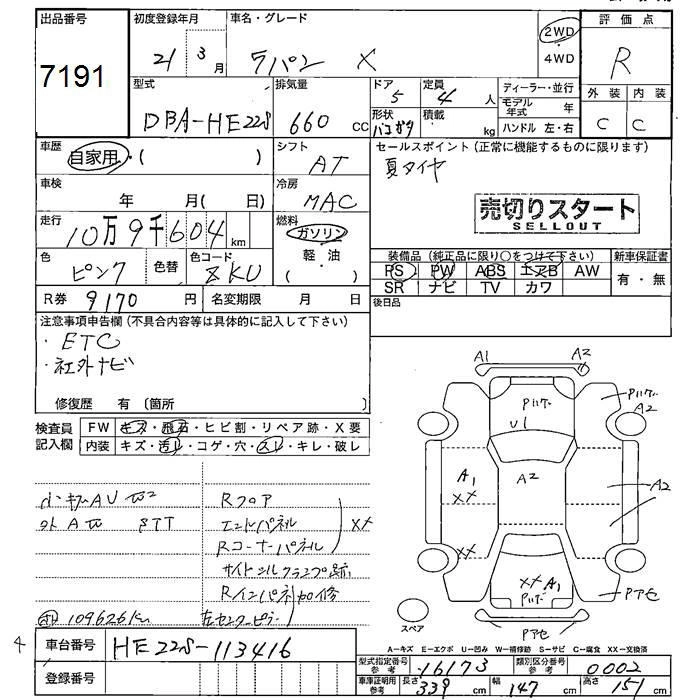 出品番号 初度登録年月 車名・グレード 2WD 評価点
7191 21 3月 ワパン X 4WD R
型式 排気量 ドア 定員 ディーラー・並行 外装 内装
DBA-HE22S 660 CC 5 4 人 モデル年式 年
形状 積載 kg ハンドル 左・右 C C
車歴 自家用・( ) シフト AT セールスポイント(正常に機能するものに限ります)
夏タイヤ
車検 年 月( 日) 冷房 MAC
売切りスタート
SELLOUT
走行 10万9千604 km 燃料 ガソリン
軽・油
( )
色 ピンク 色替 色コード ZKU
装備品(純正品に限り○をつけて下さい) 新車保証書
PS PW ABS エアB AW 有・無
SR ナビ TV カワ
R券 9170 円 名変期限 月 日 後日品
注意事項申告欄(不具合内容等は具体的に記入して下さい)
・ETC
・社外ナビ
修復歴 有 〔箇所 〕
検査員 FW キズ・飛石・ヒビ割・リペア跡・X要
記入欄 内装 キズ・汚レ・コゲ・穴・スレ・キレ・破レ
A1 A2
U1
A2
A2
A1
XX
A2
XX
XX A1
Pアセ
Pアセ
スペア
Rフロア
エンドパネル XX
Rコーナーパネル
サイドシルクランプ跡
Rインパネ加修
109626km 左センターピラー
A=キズ E=エクボ U=凹み W=補修跡 S=サビ C=腐食 XX=交換済
4 車台番号 HE22S-113416
型式指定番号 参考 16173 類別区分番号 参考 0002
登録番号
車庫証明用 参考 長さ 339 cm 幅 147 cm 高さ 151 cm